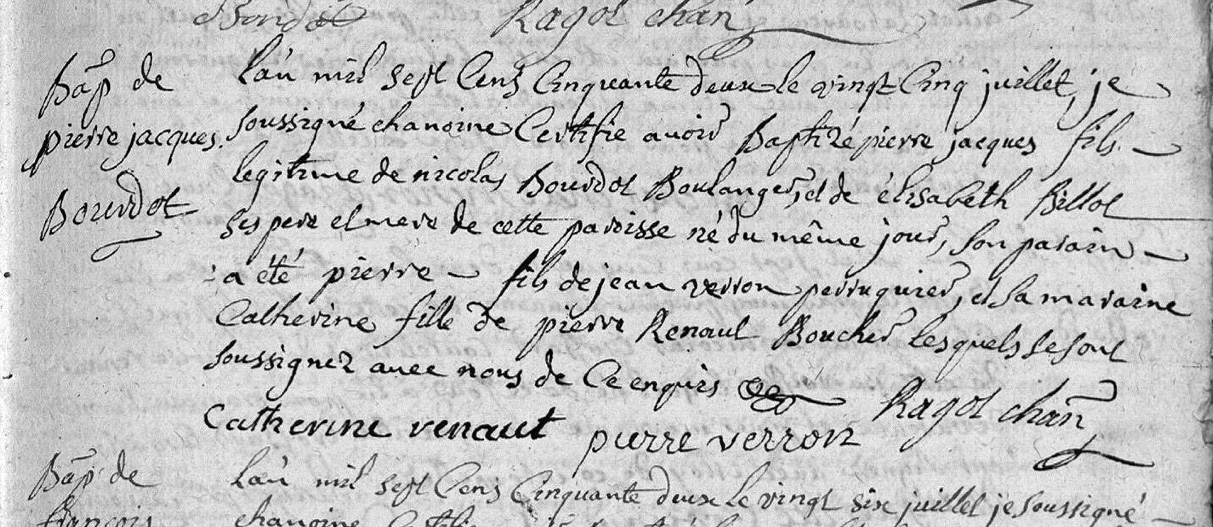 Ragot chan
Bap de
pierre jacques
Bourdot
L'an mil sept Cens Cinquante deux le vingt Cinq juillet, je
soussigné chanoine Certifie avoir Baptizé pierre jacques fils
legitime de nicolas Bourdot Boulanger, et de élisabeth Billot
ses pere et mere de cette paroisse né du même jour, son parain
a été pierre fils de jean verron perruquier, et sa maraine
Catherine fille de pierre Renaut Boucher lesquels se sont
soussignez avec nous de Ce enquis
Ragot chan
Catherine renaut
pierre verron
Bap de
françois
L'an mil sept Cens Cinquante deux le vingt six juillet je soussigné
chanoine Certifie